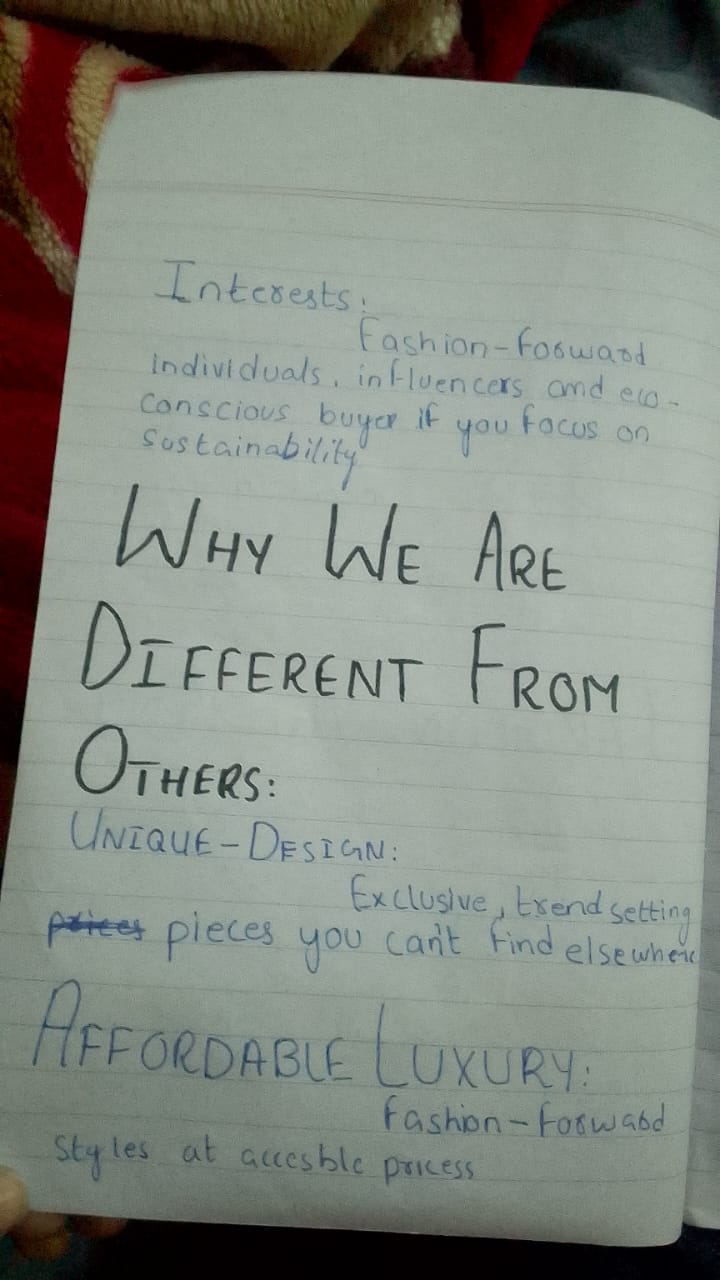 Interests:
Fashion-forward
individuals, influencers and eco-
conscious buyer if you focus on
sustainability
WHY WE ARE
DIFFERENT FROM
OTHERS:
UNIQUE-DESIGN:
Exclusive, trend setting
prices pieces you can't find elsewhere
AFFORDABLE LUXURY:
fashion-forward
styles at accesble pricess